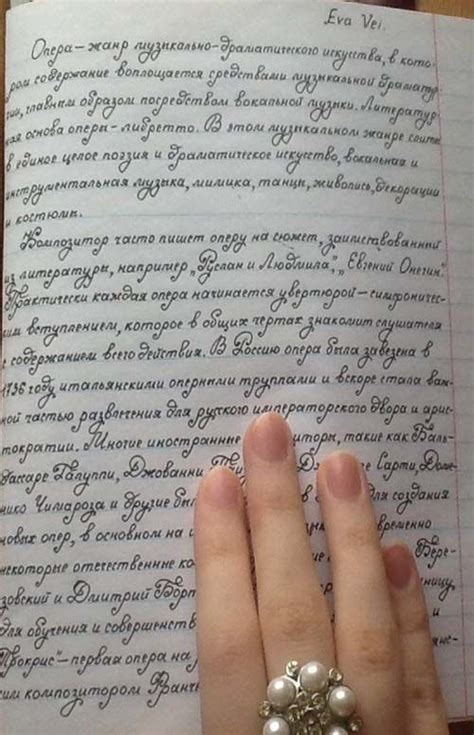 Eva Vei.
Опера – жанр музыкально-драматического искусства, в кото-
ром содержание воплощается средствами музыкальной драматур
гии, главным образом посредством вокальной музыки. Литератур
ная основа оперы – либретто. В этом музыкальном жанре слиты
в единое целое поэзия и драматическое искусство, вокальная и
инструментальная музыка, мимика, танцы, живопись, декорации
и костюмы.
Композитор часто пишет оперу на сюжет, заимствованный
из литературы, например „Руслан и Людмила", „Евгений Онегин".
Практически каждая опера начинается увертюрой – симфоничес-
ким вступлением, которое в общих чертах знакомит слушателя
с содержанием всего действия. В Россию опера была завезена в
1736 году итальянскими оперными труппами и вскоре стала важ-
ной частью развлечения для русского императорского двора и арис-
тократии. Многие иностранные
такие как Баль-
дассаре Галуппи, Джованни
Сарти, Доме-
нико Чимароза и другие
для создания
новых опер, в основном на
некоторые отечественные
Бере-
зовский и Дмитрий
для обучения и
и
Прокрис" – первая опера на
ким композитором